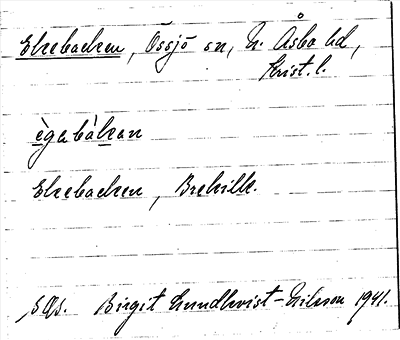 Ekebacken, Össjö sn, N. Åsbo hd,
Krist. l.
ègabàkan
Ekebacken, Brehille.
Birgit Lundkvist-Nilsson 1941.